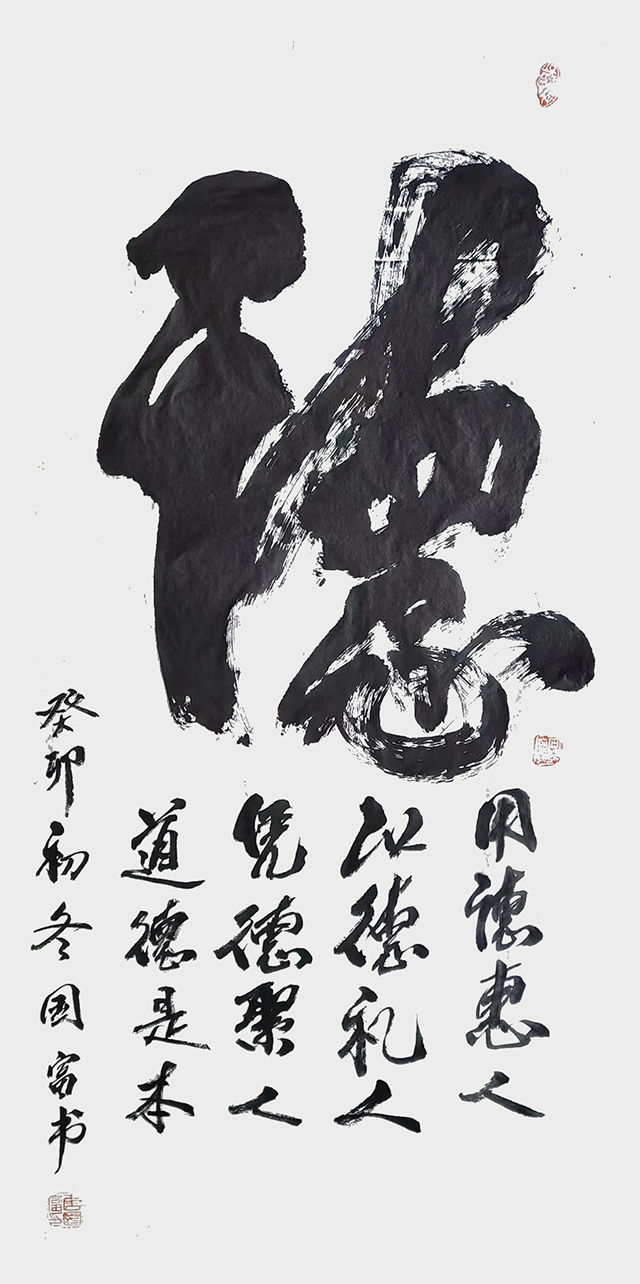 德
用德惠人
以德礼人
凭德聚人
道德是本
癸卯初冬国富书